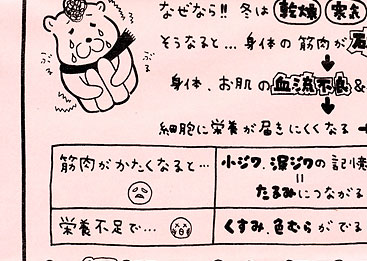 なぜなら!! 冬は 乾燥 寒気
そうなると… 身体の筋肉が
ぶる ぶる
身体、お肌の血流不良&
細胞に栄養が届きにくくなる
筋肉がかたくなると…
小ジワ、深ジワの記憶
=
たるみにつながる
栄養不足で…
くすみ、色むらがでる